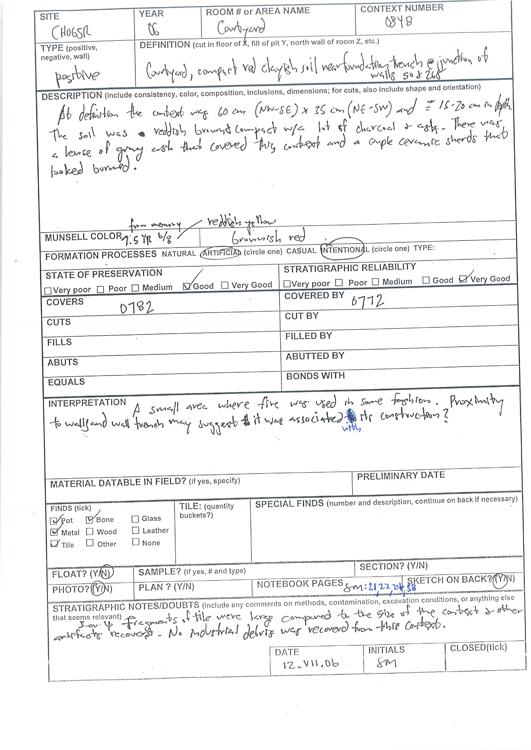 SITE
CHO6SR
YEAR
06
ROOM # or AREA NAME
Courtyard
CONTEXT NUMBER
0848
TYPE (positive, negative, wall)
positive
DEFINITION (cut in floor of X, fill of pit Y, north wall of room Z, etc.)
Courtyard, compact red clayish soil near foundation trench @ junction of
walls 50 & 268
DESCRIPTION (include consistency, color, composition, inclusions, dimensions; for cuts, also include shape and orientation)
At definition the context was 60 cm (NW-SE) x 35 cm (NE-SW) and = 15-20 cm in depth
The soil was reddish brown & compact w/ a lot of charcoal & ash. There was
a lense of gray ash that covered this context and a couple ceramic sherds that
looked burned.
from memory
reddish yellow
MUNSELL COLOR 7.5 YR 6/8
brownish red
FORMATION PROCESSES NATURAL ARTIFICIAL (circle one) CASUAL INTENTIONAL (circle one) TYPE:
STATE OF PRESERVATION
Very poor Poor Medium Good Very Good
STRATIGRAPHIC RELIABILITY
Very poor Poor Medium Good Very Good
COVERS 0782
COVERED BY 0772
CUTS
CUT BY
FILLS
FILLED BY
ABUTS
ABUTTED BY
EQUALS
BONDS WITH
INTERPRETATION A small area where fire was used in some fashion. Proximity
to wall and wall trench may suggest it was associated with its construction?
MATERIAL DATABLE IN FIELD? (if yes, specify)
PRELIMINARY DATE
FINDS (tick)
Pot Bone Glass
Metal Wood Leather
Tile Other None
TILE: (quantity buckets?)
SPECIAL FINDS (number and description, continue on back if necessary)
FLOAT? (Y/N)
SAMPLE? (if yes, # and type)
SECTION? (Y/N)
PHOTO? (Y/N)
PLAN ? (Y/N)
NOTEBOOK PAGES SM: 21, 22, 24, 38
SKETCH ON BACK? (Y/N)
STRATIGRAPHIC NOTES/DOUBTS (include any comments on methods, contamination, excavation conditions, or anything else
that seems relevant) 3 or 4 fragments of tile were large compared to the size of the context & other
artifacts recovered. No industrial debris was recovered from this context.
DATE
12.VII.06
INITIALS
SM
CLOSED(tick)